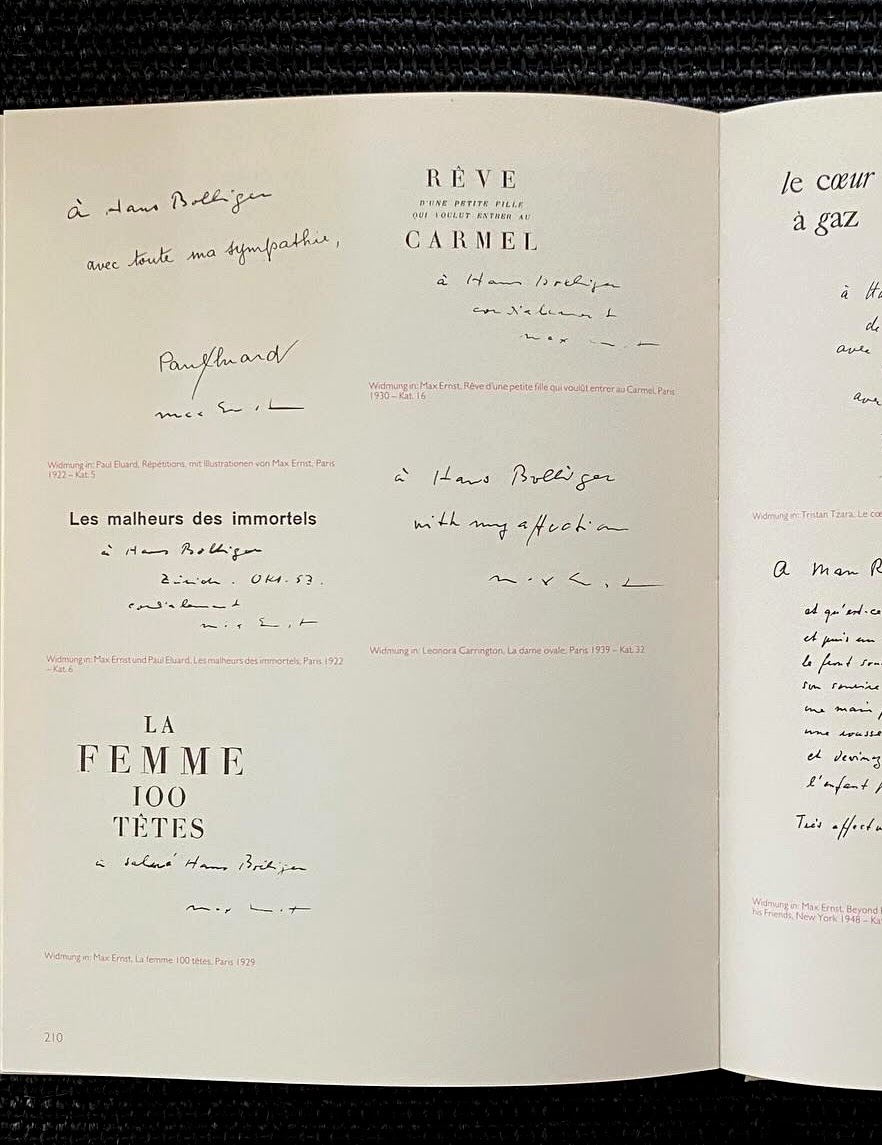 à Hans Bolliger
avec toute ma sympathie,
Paul Eluard
max Ernst
Widmung in: Paul Eluard, Répétitions, mit Illustrationen von Max Ernst, Paris
1922 – Kat. 5
Les malheurs des immortels
à Hans Bolliger
Zürich . Okt. 53.
cordialement
max Ernst
Widmung in: Max Ernst und Paul Eluard, Les malheurs des immortels, Paris 1922
– Kat. 6
LA
FEMME
100
TÊTES
à Hans Bolliger
max Ernst
Widmung in: Max Ernst, La femme 100 têtes, Paris 1929
210
RÊVE
D'UNE PETITE FILLE
QUI VOULUT ENTRER AU
CARMEL
à Hans Bolliger
cordialement
max Ernst
Widmung in: Max Ernst, Rêve d'une petite fille qui voulût entrer au Carmel, Paris
1930 – Kat. 16
à Hans Bolliger
with my affection
max Ernst
Widmung in: Leonora Carrington, La dame ovale, Paris 1939 – Kat. 32
le cœur
à gaz
à
avec
Widmung in: Tristan Tzara, Le cœ
A Man R
et qu'est-ce
et puis un
le front
son sourire
une main
une
et devinez
l'enfant
Très affectu
Widmung in: Max Ernst, Beyond
his Friends, New York 1948 – Ka